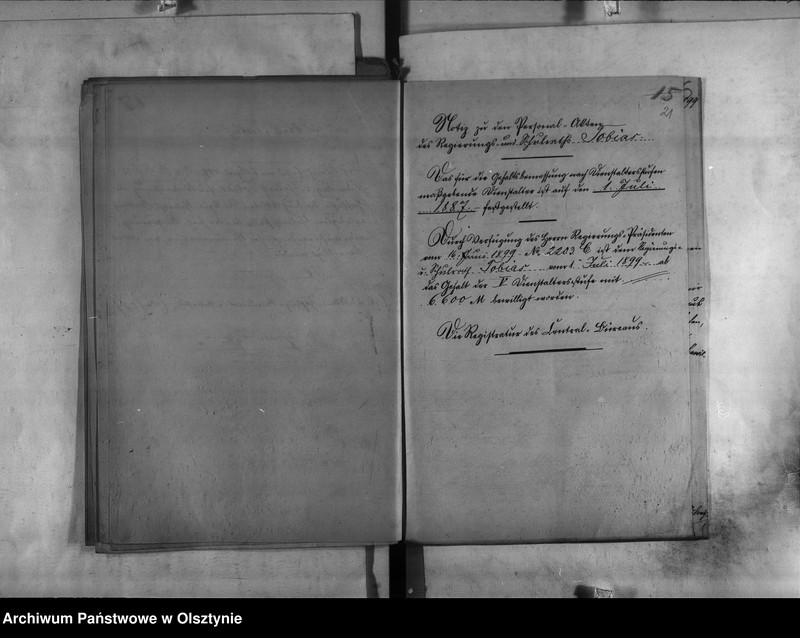 15
21
Notiz zu den Personal-Akten
des Regierungs- und Schulraths Tobias
Das für die Gehaltsbemessung nach Dienstaltersstufen
maßgebende Dienstalter ist auf den 1. Juli
1887. festgestellt.
Durch Verfügung des Herrn Regierungs-Präsidenten
vom 14. Juni 1899 No. 2203 C ist dem Regierungs-
u. Schulrath Tobias vom 1. Juli 1899 ab
das Gehalt der V Dienstaltersstufe mit
6.600 M bewilligt worden.
Die Registratur des Central-Büreaus.
Archiwum Państwowe w Olsztynie